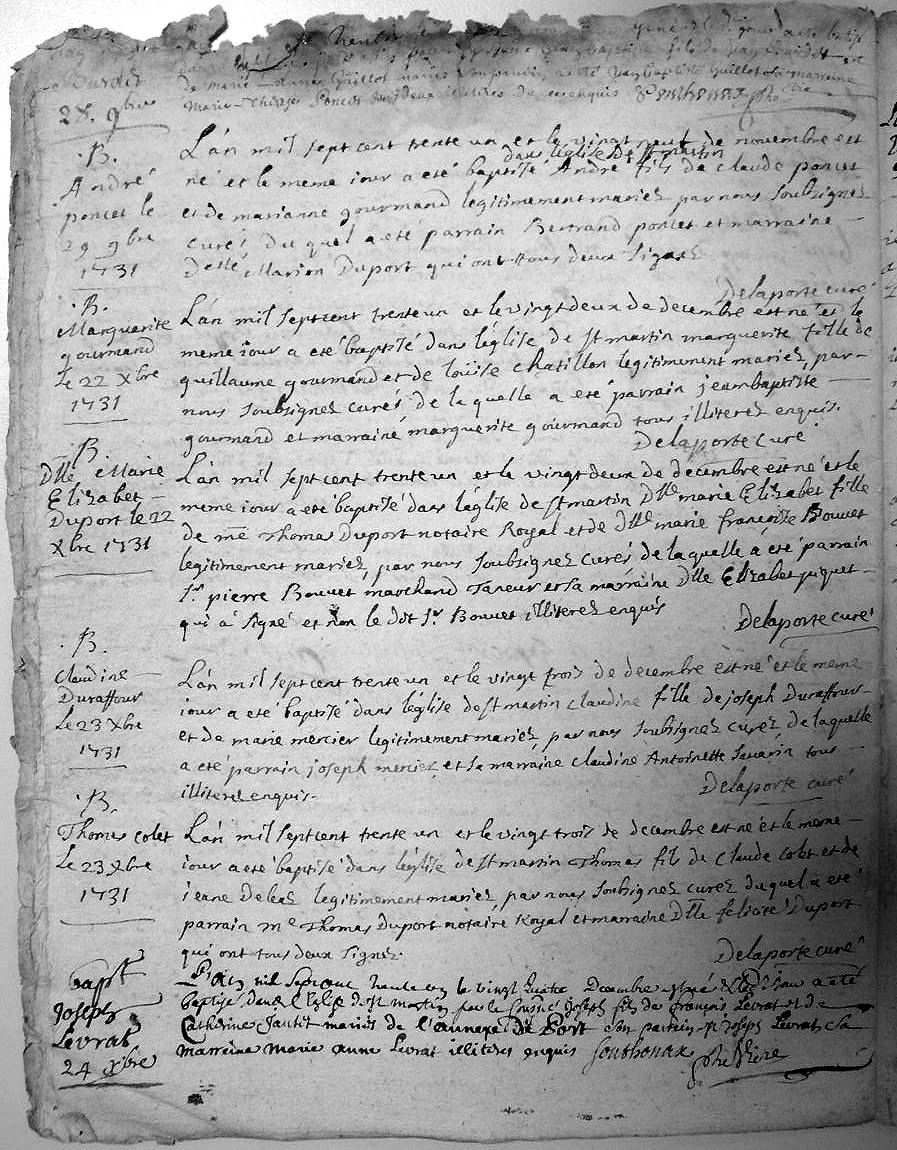 28. 9bre
de marie guillot mariés guillot sa marraine
Marie Therese Poncet tous deux illiteres de ce enquis
.B.
André
poncet le
29 9bre
1731
L'an mil sept cent trente un et le vingt neuf de novembre est
dans l'église De st martin
né et le meme iour a eté baptisé André fils de claude poncet
et de marianne gourmand legitimement mariez par nous soubsignez
curés du quel a eté parrain Bertrand poncet et marraine
Delle Marion Duport qui ont tous deux signez
Delaporte curé
.B.
Marguerite
gourmand
Le 22 Xbre
1731
L'an mil sept cent trente un et le vingt deux de decembre est né et le
meme iour a eté baptisé dans l'église de st martin marguerite fille de
guillaume gourmand et de loüise chatillon legitimement mariez, par
nous soubsignez curés de la quelle a eté parrain jean baptiste
gourmand et marraine marguerite gourmand tous illiterez enquis.
Delaporte curé
.B.
Dlle Marie
Elizabet
Duport le 22
Xbre 1731
L'an mil sept cent trente un et le vingt deux de decembre est né et le
meme iour a eté baptisé dans l'église de st martin Dlle marie Elizabet fille
de me Thomas Duport notaire Royal et de Dlle marie françoise Bouvet
legitimement mariez, par nous soubsignez curés de laquelle a eté parrain
sr. pierre Bouvet marchand Taneur et sa marraine Dlle Elizabet piquet
qui a signé et non le ddt sr Bouvet illiterez enquis
Delaporte curé
.B.
Claudine
Duraffour
Le 23 Xbre
1731
L'an mil sept cent trente un et le vingt trois de decembre est né et le meme
iour a eté baptisé dans l'église de st martin claudine fille de joseph Duraffour
et de marie mercier legitimement mariez, par nous soubsignez curez, de laquelle
a eté parrain joseph mercier et sa marraine claudine Antoinette savarin tous
illiterez enquis.
Delaporte curé
.B.
Thomas colet
Le 23 Xbre
1731
L'an mil sept cent trente un et le vingt trois de decembre est né et le meme
iour a eté baptisé dans l'église de st martin Thomas fils de Claude Colet et de
jeane Deleaz legitimement mariez, par nous soubsignez curez duquel a eté
parrain me Thomas Duport notaire Royal et marraine Dlle felicité Duport
qui ont tous deux signez.
Delaporte curé
bapt
Joseph
Levrat
24 Xbre
L'an mil sept cent trente un le vingt quatre Decembre est né et led. jour a eté
baptisé dans l'eglise de st martin par le soussé Joseph fils de françois Levrat et de
Catherine Jantit mariés de son parrein Joseph Levrat, sa
marreine Marie anne Levrat illiteres enquis Southonax